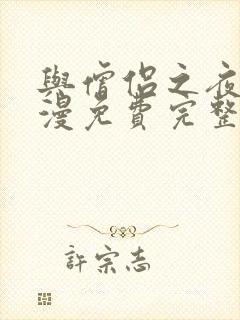 與僧侶之夜
漫免費完整
許宗志